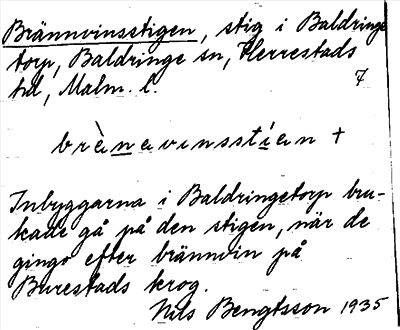 Brännvinsstigen, stig i Baldringe
torp, Baldringe sn, Herrestads
hd, Malm. l. 7
brènavinsstían +
Inbyggarna i Baldringetorp bru-
kade gå på den stigen, när de
gingo efter brännvin på
Burestads krog.
Nils Bengtsson 1935